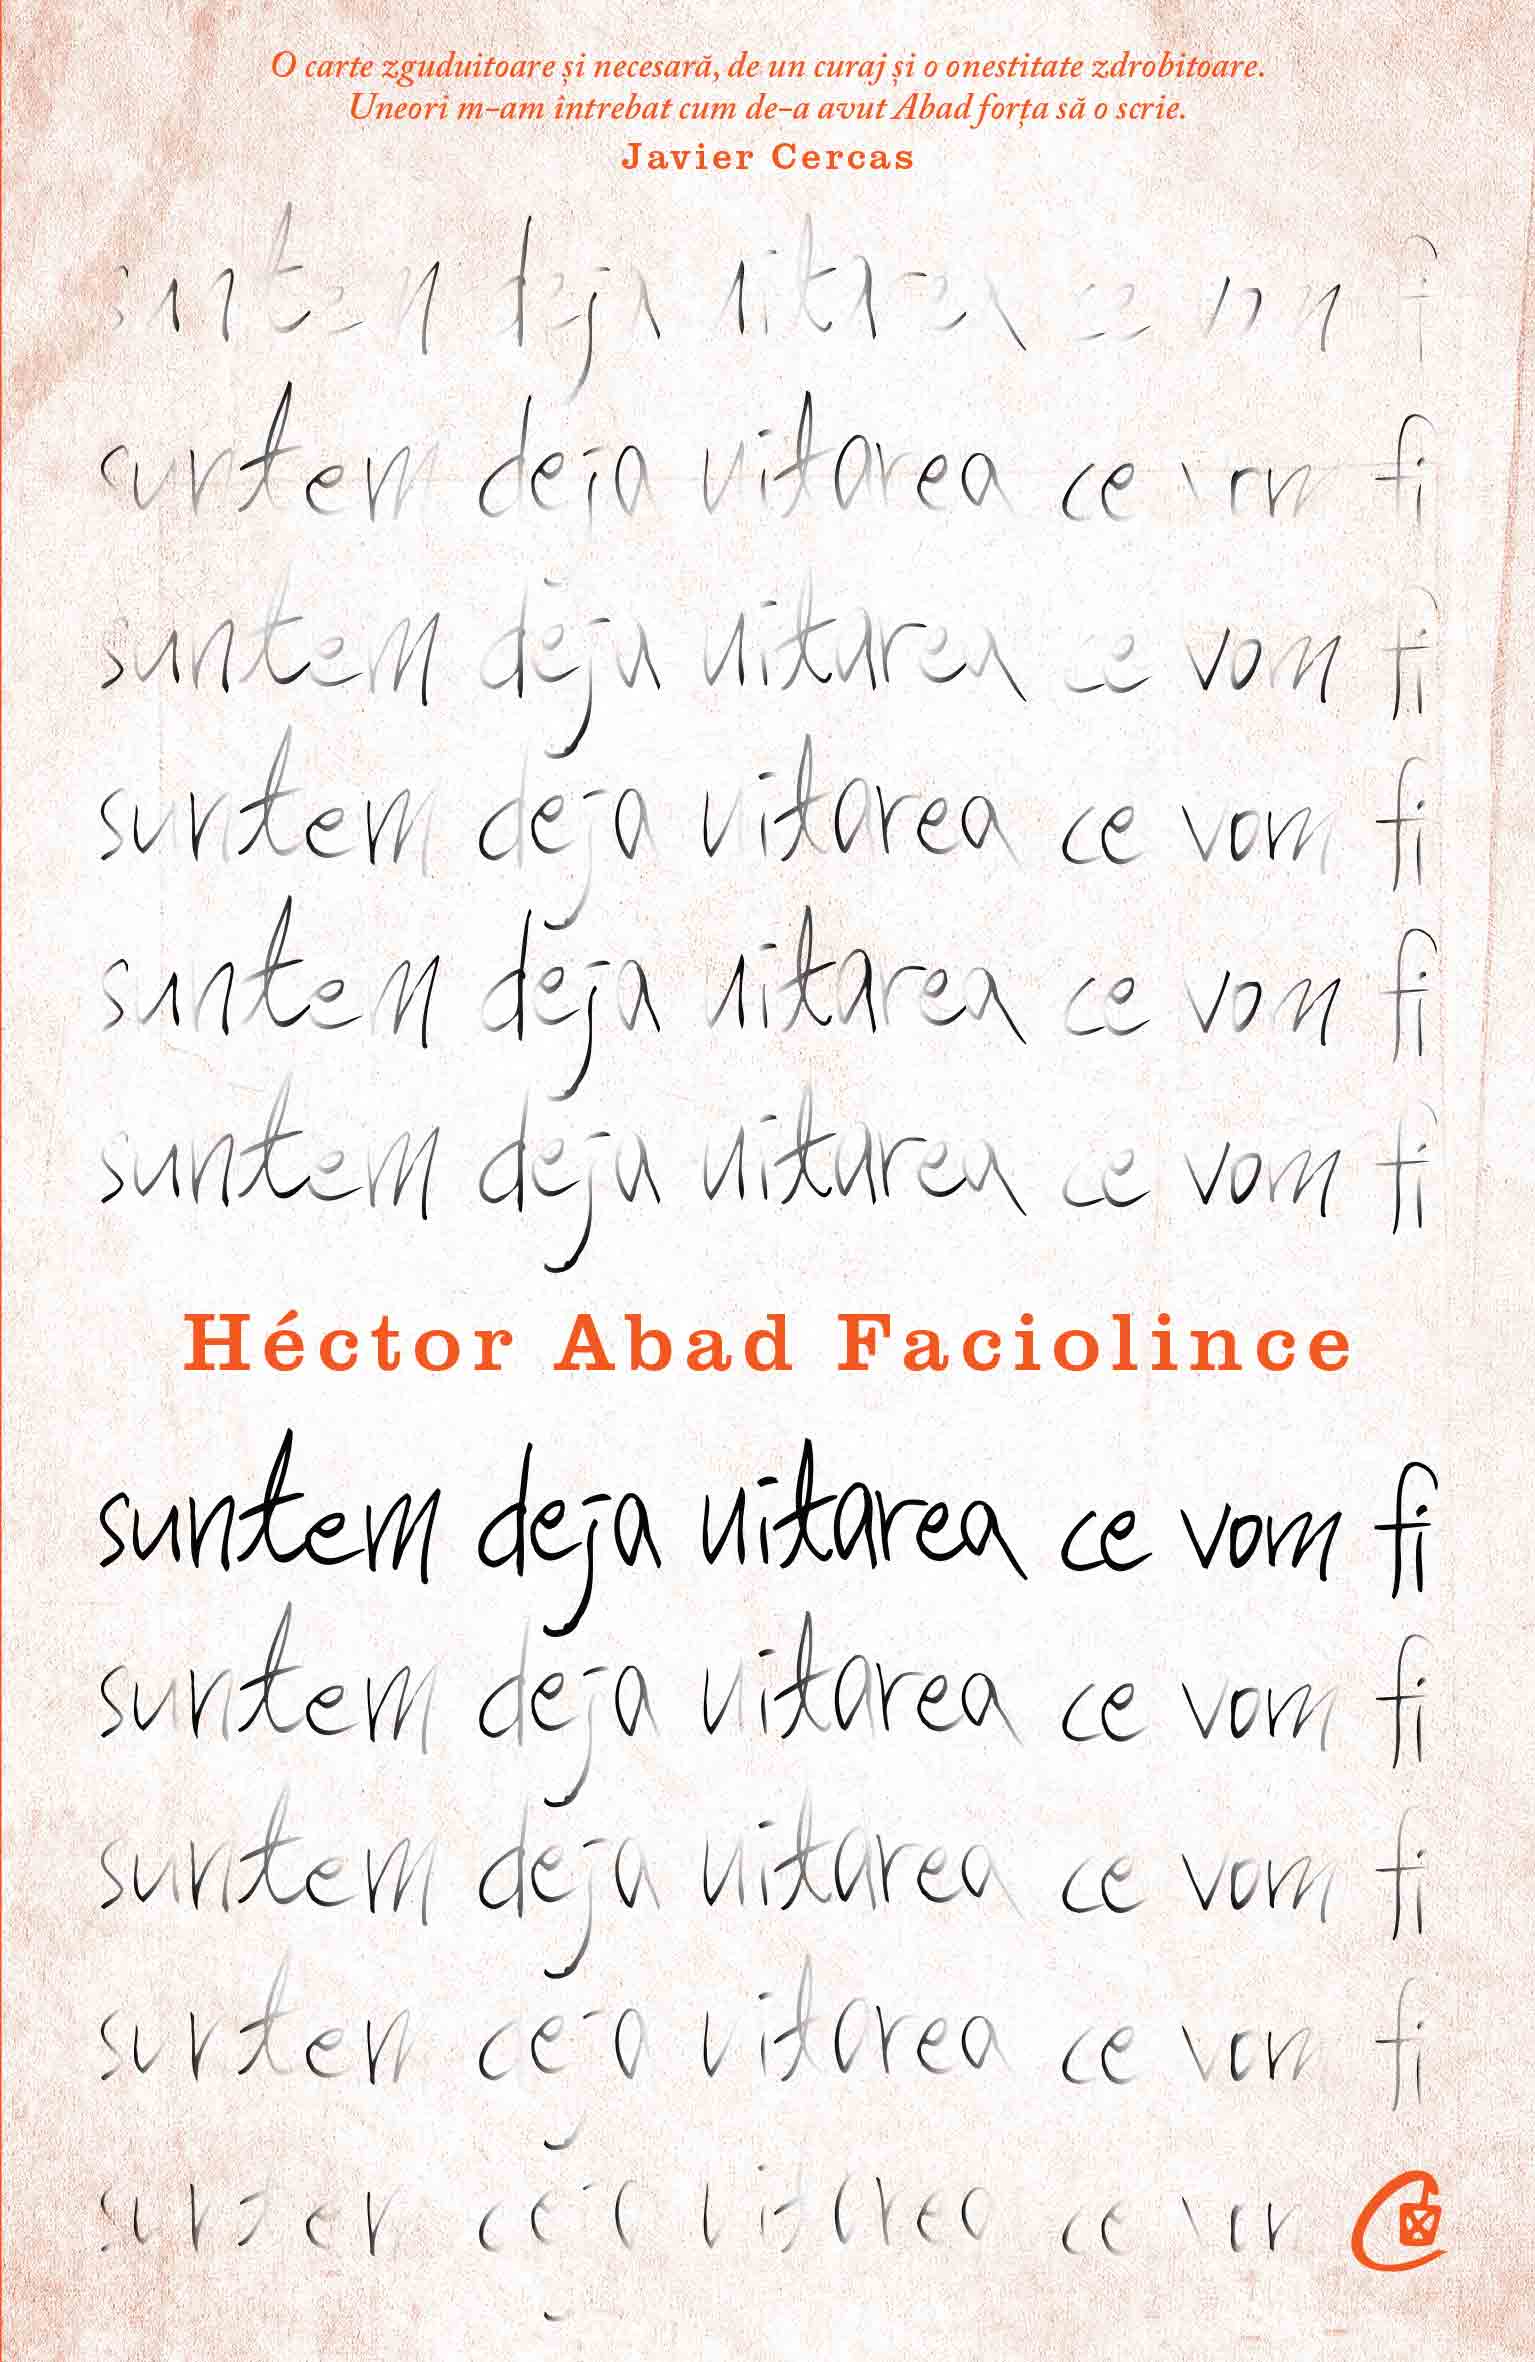 O carte zguduitoare și necesară, de un curaj și o onestitate zdrobitoare.
Uneori m-am întrebat cum de-a avut Abad forța să o scrie.
Javier Cercas
suntem deja uitarea ce vom fi
suntem deja uitarea ce vom fi
suntem deja uitarea ce vom fi
suntem deja uitarea ce vom fi
suntem deja uitarea ce vom fi
suntem deja uitarea ce vom fi
Héctor Abad Faciolince
suntem deja uitarea ce vom fi
suntem deja uitarea ce vom fi
suntem deja uitarea ce vom fi
suntem deja uitarea ce vom fi
suntem deja uitarea ce vom